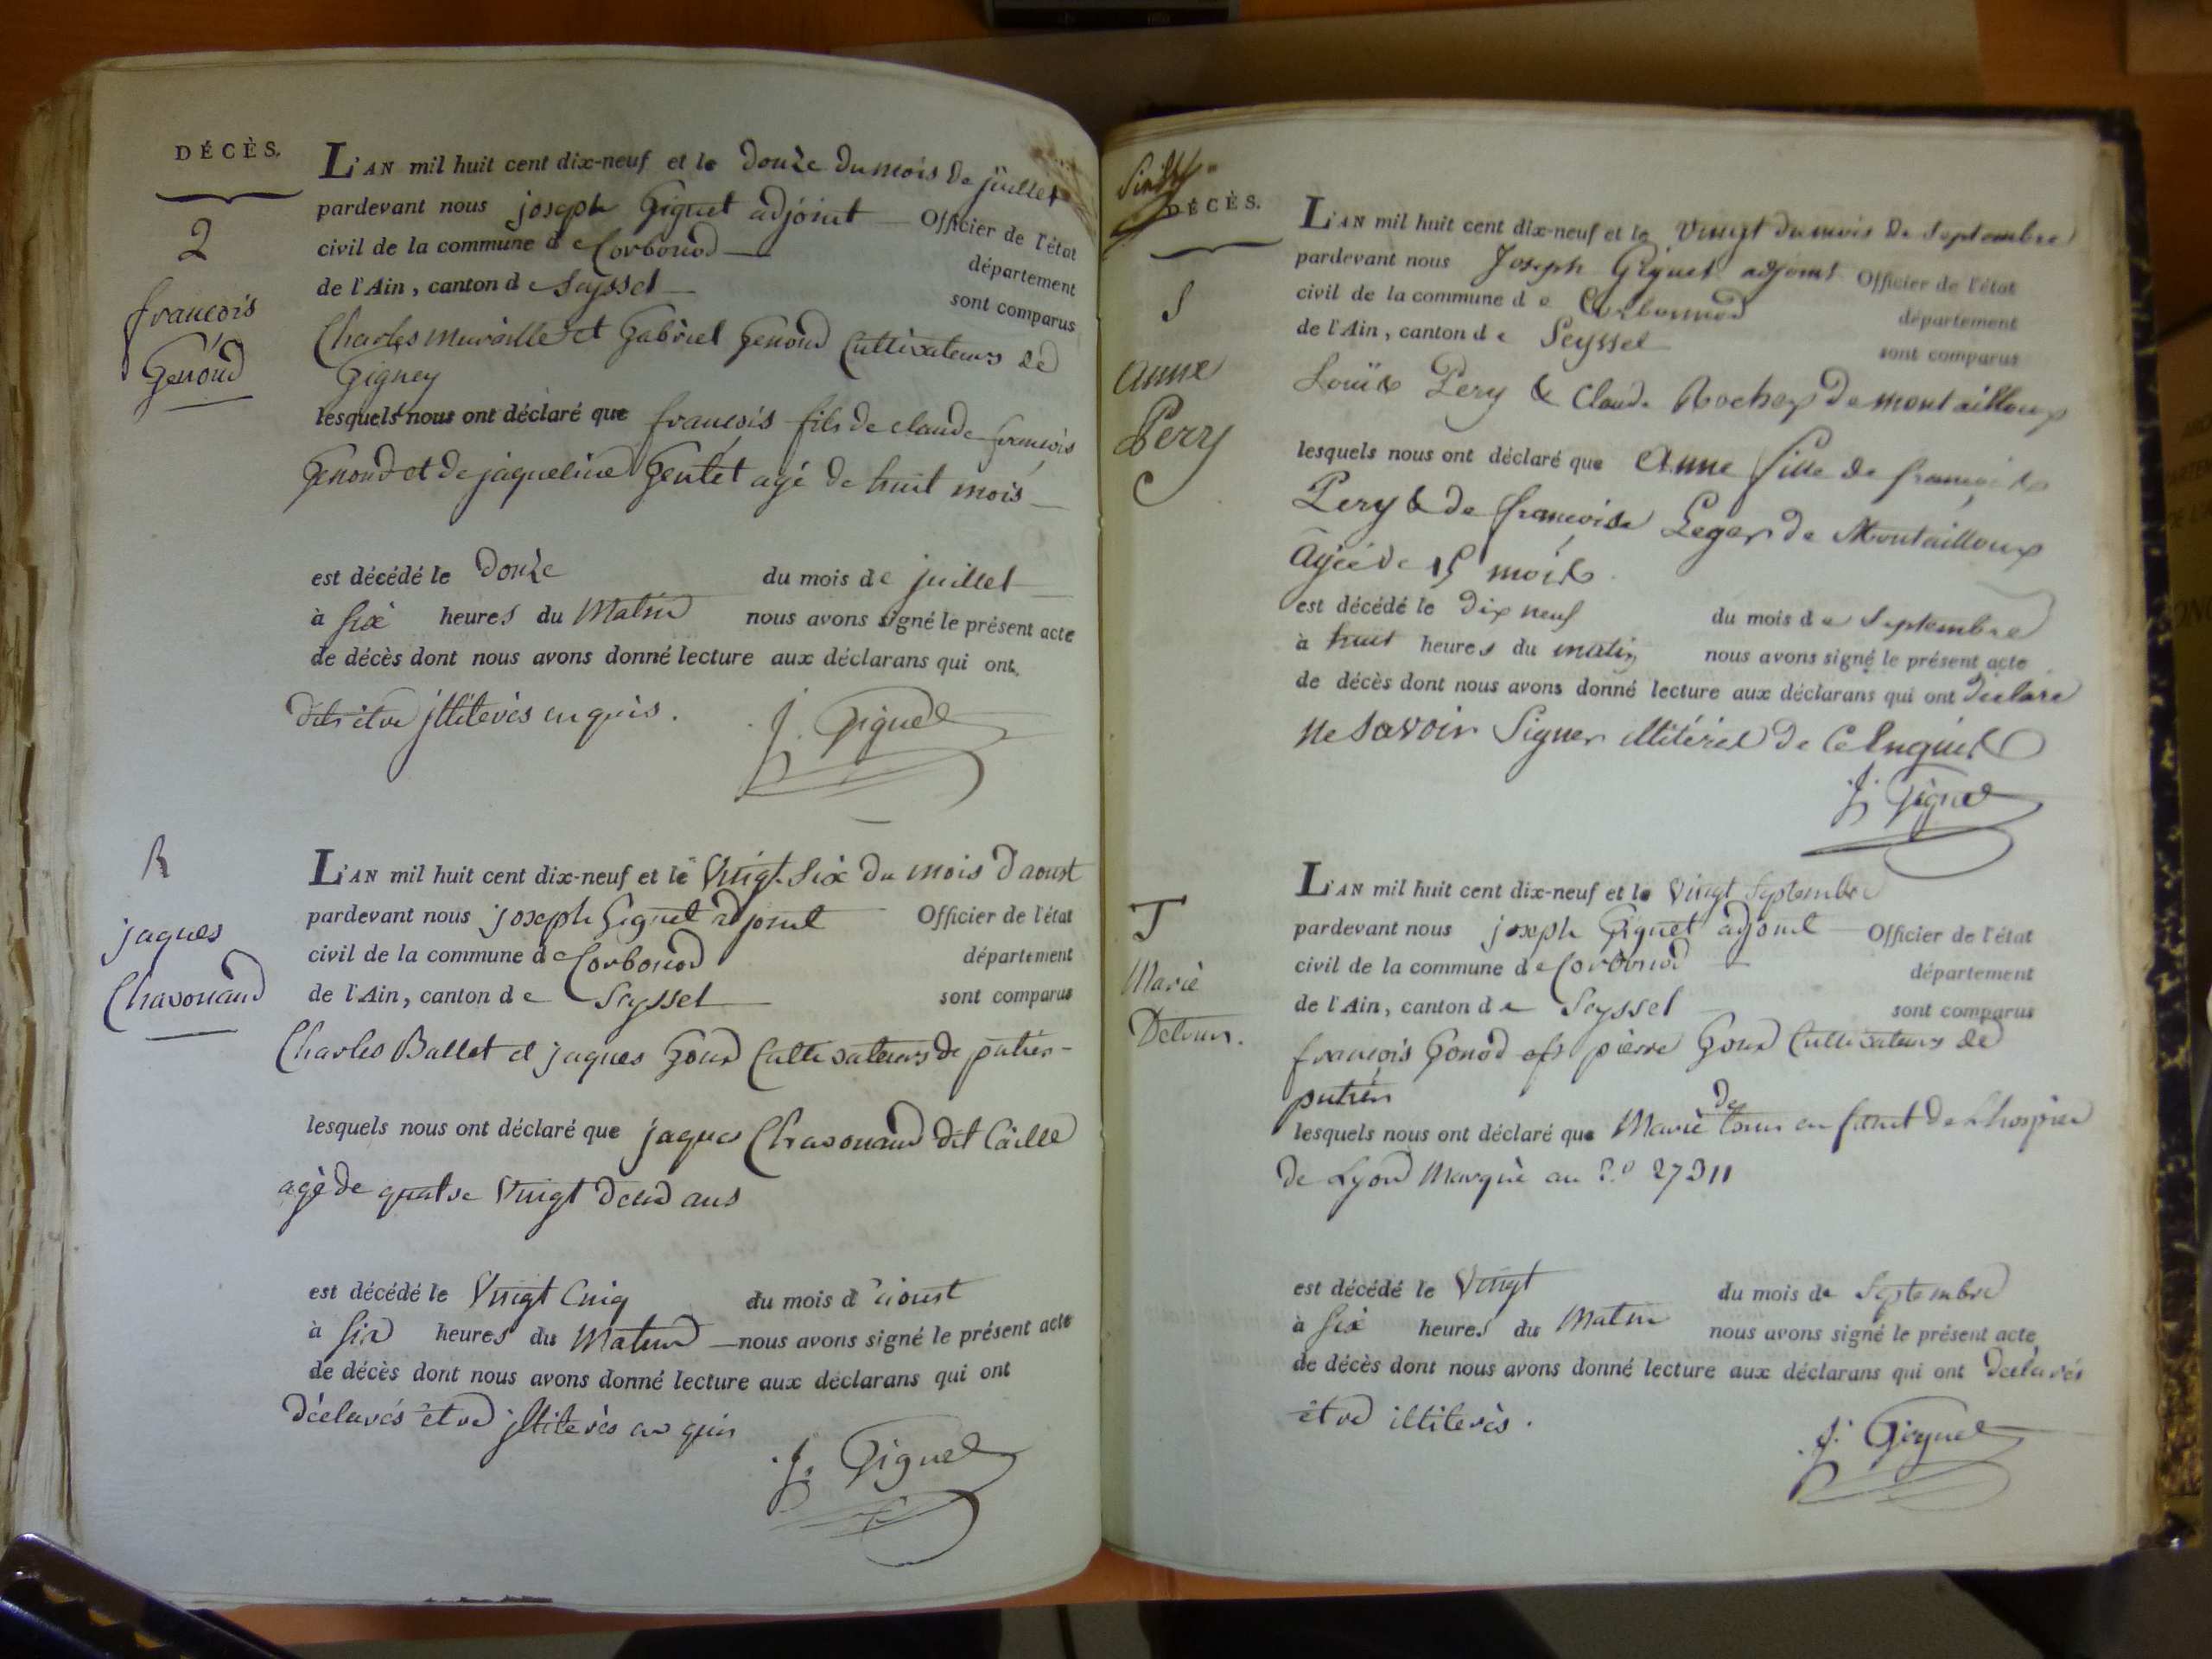 DÉCÈS.
2
françois
Genoud
L'AN mil huit cent dix-neuf et le douze du mois de juillet
pardevant nous joseph Gignet adjoint Officier de l'état
civil de la commune de Corbonod département
de l'Ain, canton de Seyssel sont comparus
Charles muraille et Gabriel Genoud Cultivateurs de
Gigney
lesquels nous ont déclaré que françois fils de claude françois
Genoud et de jaqueline Gentet agé de huit mois
est décédé le douze du mois de juillet
à six heures du Matin nous avons signé le présent acte
de décès dont nous avons donné lecture aux déclarans qui ont
dits être jlliterés enquis.
J. Gignet
R
jaques
Chavonand
L'AN mil huit cent dix-neuf et le Vingt Six du mois d'aoust
pardevant nous joseph Gignet adjoint Officier de l'état
civil de la commune de Corbonod département
de l'Ain, canton de Seyssel sont comparus
Charles Ballet et jaques Goud Cultivateurs de putier
lesquels nous ont déclaré que jaques Chavonand dit Caille
agé de quatre Vingt deux ans
est décédé le Vingt Cinq du mois d'aoust
à six heures du Matin nous avons signé le présent acte
de décès dont nous avons donné lecture aux déclarans qui ont
déclarés être jlliterés en quis
J. Gignet
DÉCÈS.
S
anne
Pery
L'AN mil huit cent dix-neuf et le vingt du mois de Septembre
pardevant nous Joseph Gignet adjoint Officier de l'état
civil de la commune de Corbonnod département
de l'Ain, canton de Seyssel sont comparus
Louis Pery & Claude Rochex de montailloux
lesquels nous ont déclaré que Anne fille de françois
Pery & de françoise Leger de Montailloux
agée de 15 mois
est décédé le dix neuf du mois de Septembre
à huit heures du matin nous avons signé le présent acte
de décès dont nous avons donné lecture aux déclarans qui ont déclaré
ne savoir Signer illitéré de ce Enquis
J. Gignet
T
Marie
Detour.
L'AN mil huit cent dix-neuf et le Vingt Septembre
pardevant nous joseph Gignet adjoint Officier de l'état
civil de la commune de Corbonod département
de l'Ain, canton de Seyssel sont comparus
françois Gonod et pierre Goud Cultivateurs de
putier
lesquels nous ont déclaré que Marie de tour enfant de Lhospice
de Lyon Marqué au n.o 27311
est décédé le Vingt du mois de Septembre
à six heures du Matin nous avons signé le présent acte
de décès dont nous avons donné lecture aux déclarans qui ont déclarés
être illiterés.
J. Gignet